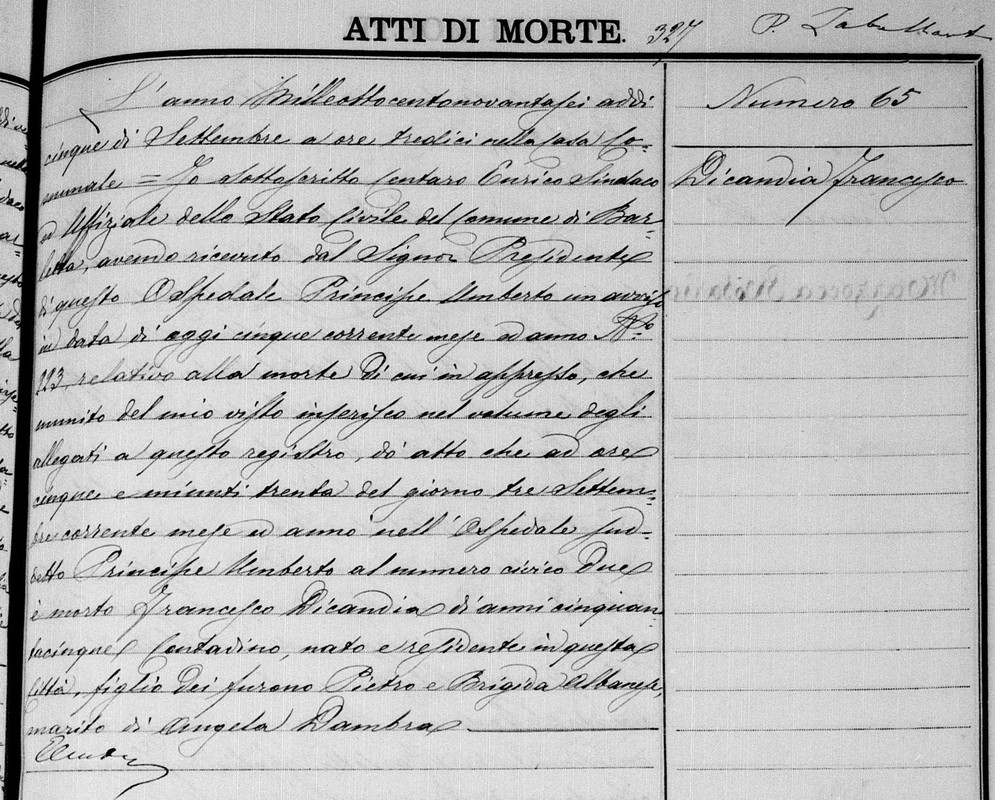 ATTI DI MORTE. 327
Numero 65
Dicandia Francesco
L'anno Milleottocentonovantasei addi
cinque di Settembre a ore tredici nella Casa Co=
munale = Io sottoscritto Centaro Enrico Sindaco
ed Uffiziale dello Stato Civile del Comune di Bar=
letta, avendo ricevuto dal Signor Presidente
di questo Ospedale Principe Umberto un avviso
in data di oggi cinque corrente mese ed anno No
223, relativo alla morte di cui in appresso, che
munito del mio visto inserisco nel volume degli
allegati a questo registro, do atto che ad ore
cinque e minuti trenta del giorno tre Settem=
bre corrente mese ed anno nell'Ospedale sud=
detto Principe Umberto al numero civico Due
è morto Francesco Dicandia di anni cinquan
tacinque Contadino, nato e residente in questa
Città, figlio dei furono Pietro e Brigida Albanese,
marito di Angela Dambra